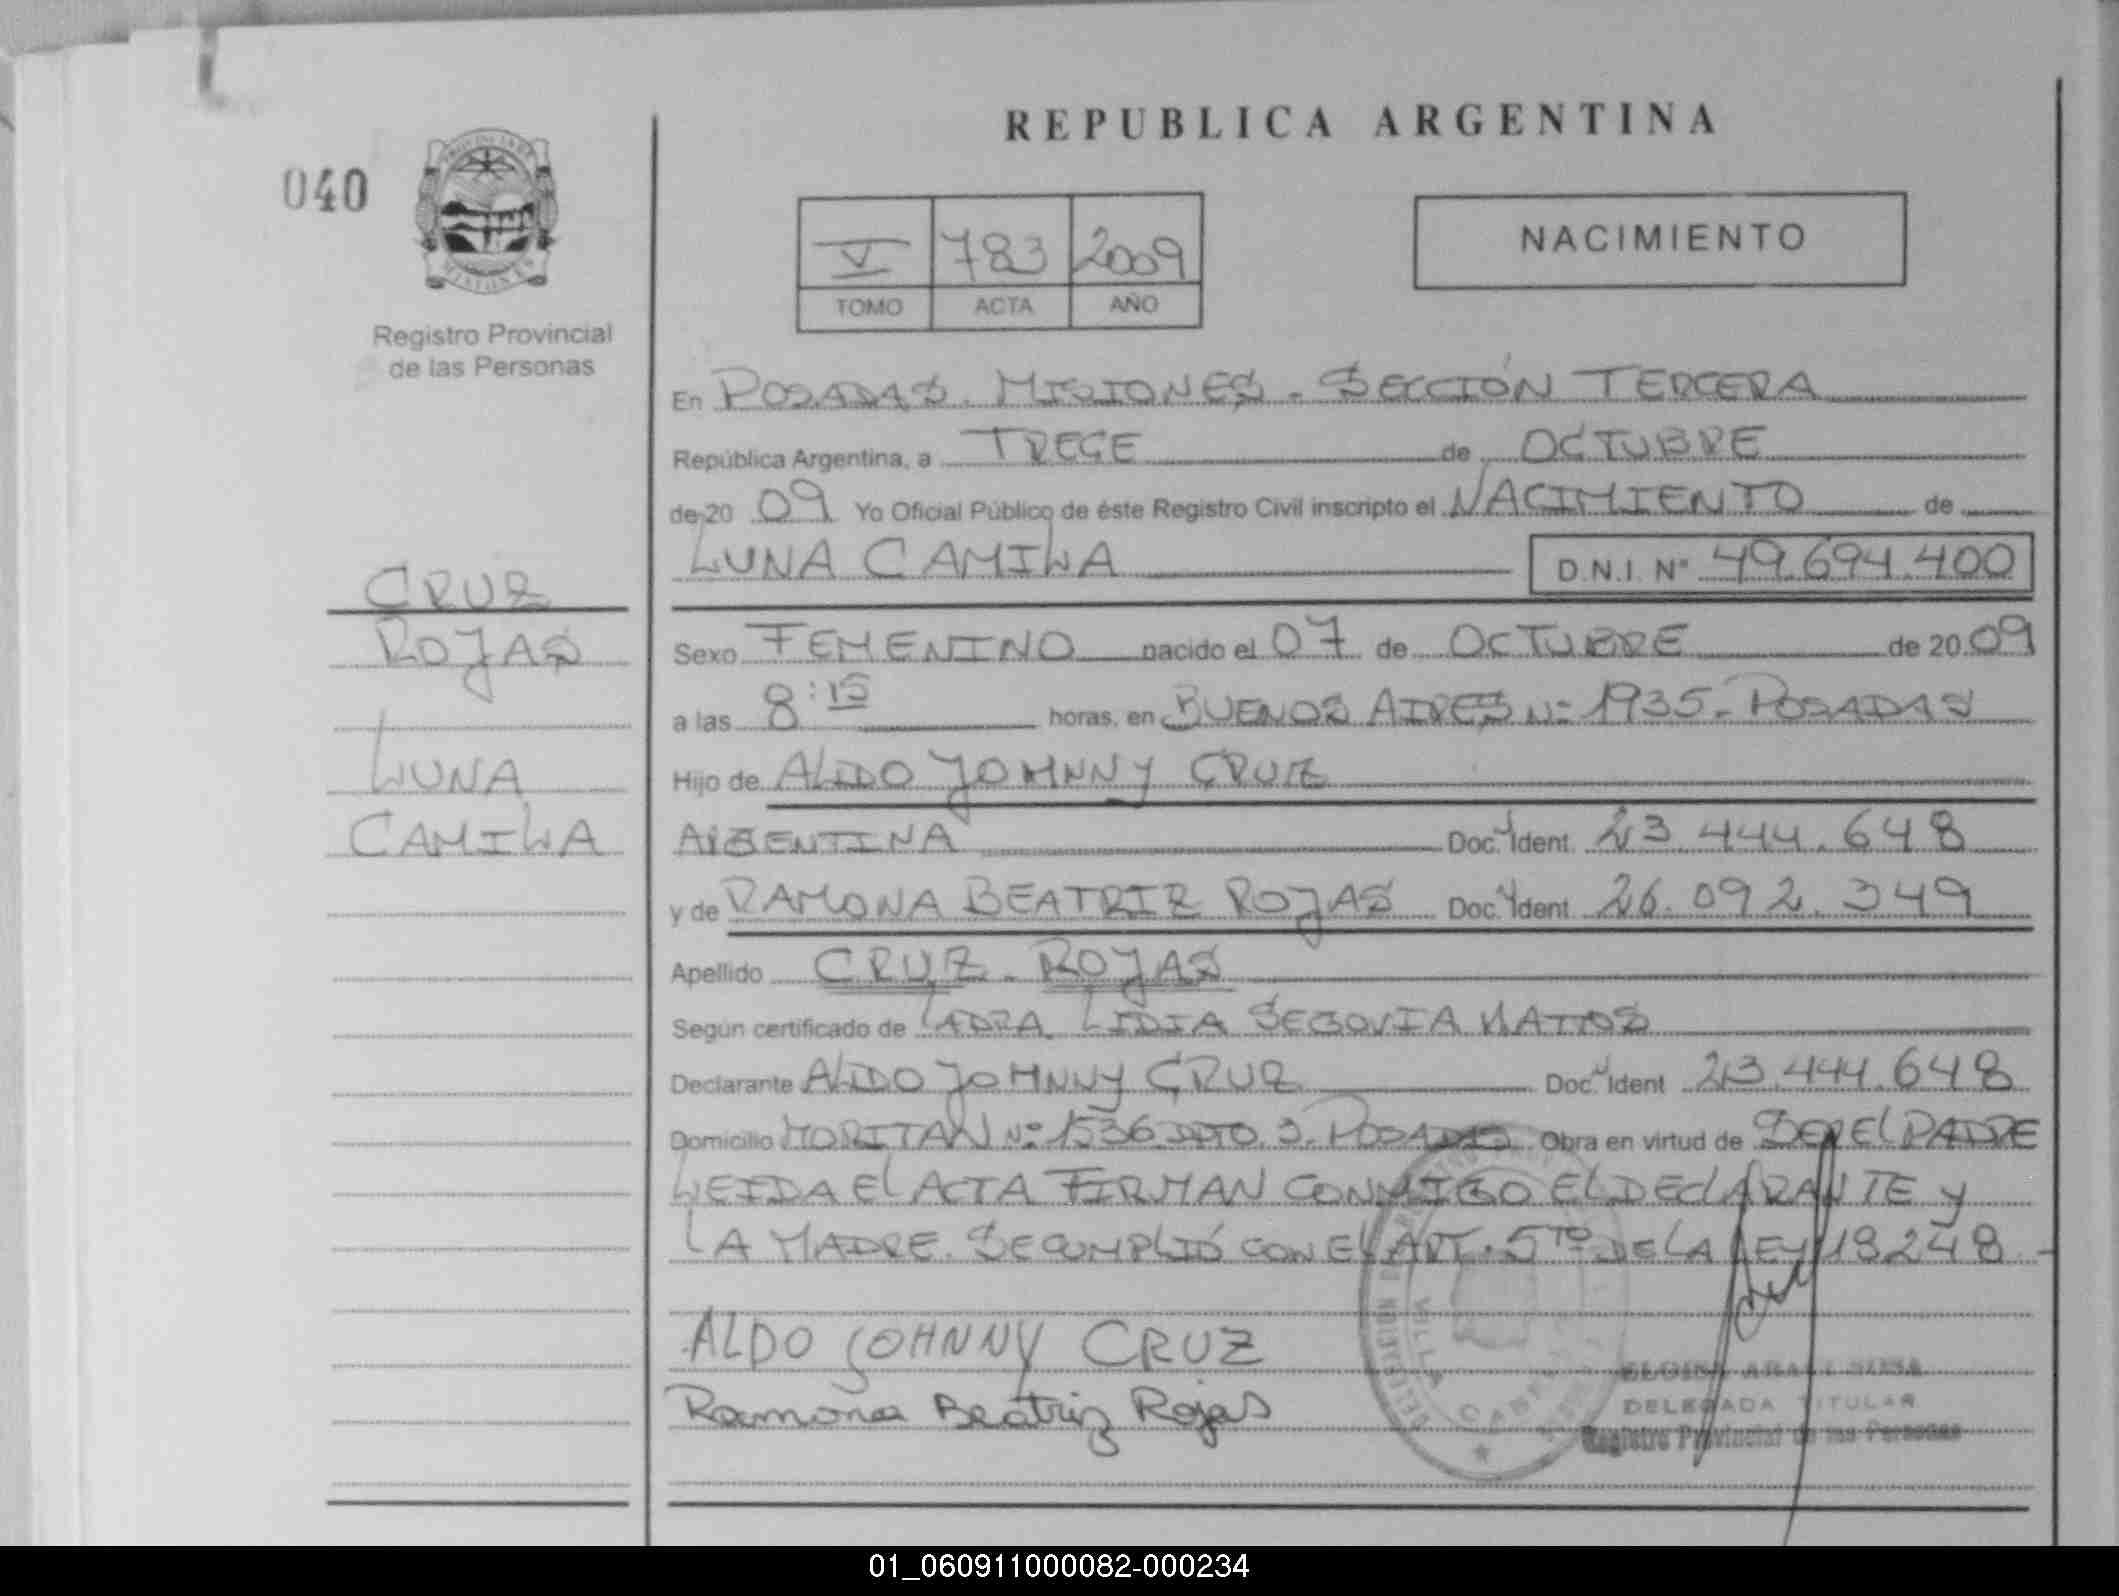 REPUBLICA ARGENTINA
040
NACIMIENTO
V 783 2009
TOMO ACTA AÑO
Registro Provincial
de las Personas
En POSADAS. MISIONES. SECCIÓN TERCERA
República Argentina, a TRECE de OCTUBRE
de 20 09 Yo Oficial Público de éste Registro Civil inscripto el NACIMIENTO de
LUNA CAMILA D.N.I. Nº 49.694.400
CRUZ
ROJAS
LUNA
CAMILA
Sexo FEMENINO nacido el 07 de OCTUBRE de 20 09
a las 8:15 horas, en BUENOS AIRES Nº 1935. POSADAS
Hijo de ALDO JOHNNY CRUZ
ARGENTINA Doc. Ident. 23.444.648
y de RAMONA BEATRIZ ROJAS Doc. Ident. 26.092.349
Apellido CRUZ - ROJAS
Según certificado de LIDIA SEGOVIA MATTOS
Declarante ALDO JOHNNY CRUZ Doc. Ident 23.444.648
Domicilio Nº 1536 DPTO. 3. POSADAS Obra en virtud de SER EL PADRE
LEIDA El ACTA FIRMAN CONMIGO EL DECLARANTE y
LA MADRE. SE CUMPLIÓ CON El ART. 5TO DE LA LEY 18248 -
ALDO JOHNNY CRUZ
Ramona Beatriz Rojas
DELEGADA TITULAR
Registro Provincial de las Personas
01_060911000082-000234